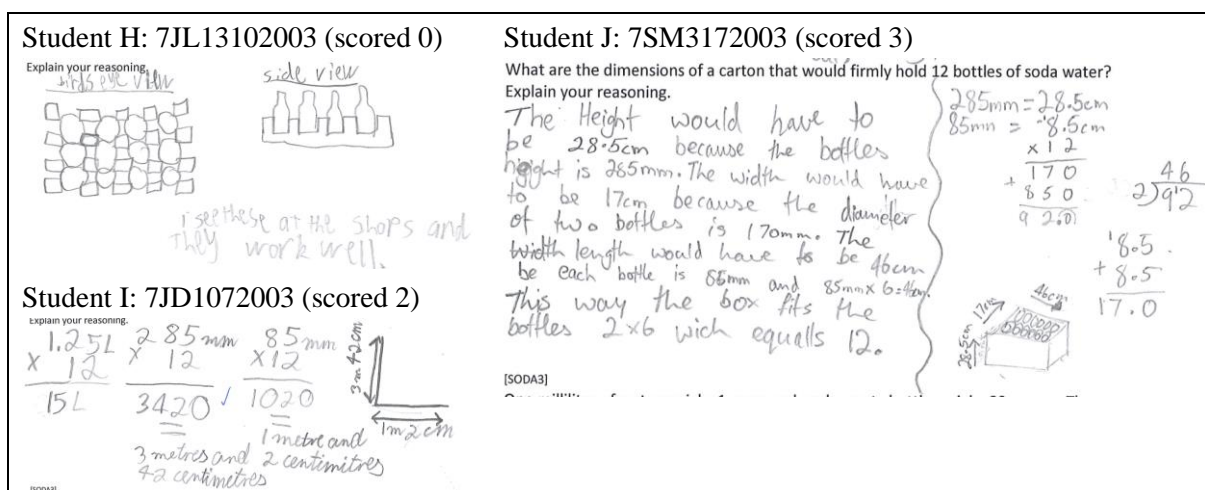 Student H: 7JL13102003 (scored 0)
Explain your reasoning.
birds eye view
side view
i see these at the shops and
they work well.
Student I: 7JD1072003 (scored 2)
Explain your reasoning.
1.25L
x 12
15L
285mm
x 12
3420
3 metres and
42 centimetres
85mm
x12
1020
1 metre and
2 centimetres
3m 42cm
1m2cm
Student J: 7SM3172003 (scored 3)
What are the dimensions of a carton that would firmly hold 12 bottles of soda water?
Explain your reasoning.
The Height would have to
be 28.5cm because the bottles
height is 285mm. The width would have
to be 17cm because the diameter
of two bottles is 170mm. The
width length would have to be 46cm
be each bottle is 85mm and 85mm x 6=46cm.
This way the box fits the
bottles 2x6 wich equalls 12.
285mm=28.5cm
85mm = 8.5cm
x12
170
+ 850
92.0
46
2)92
8.5
+ 8.5
17.0
46cm
17cm
28.5cm
[SODA3]